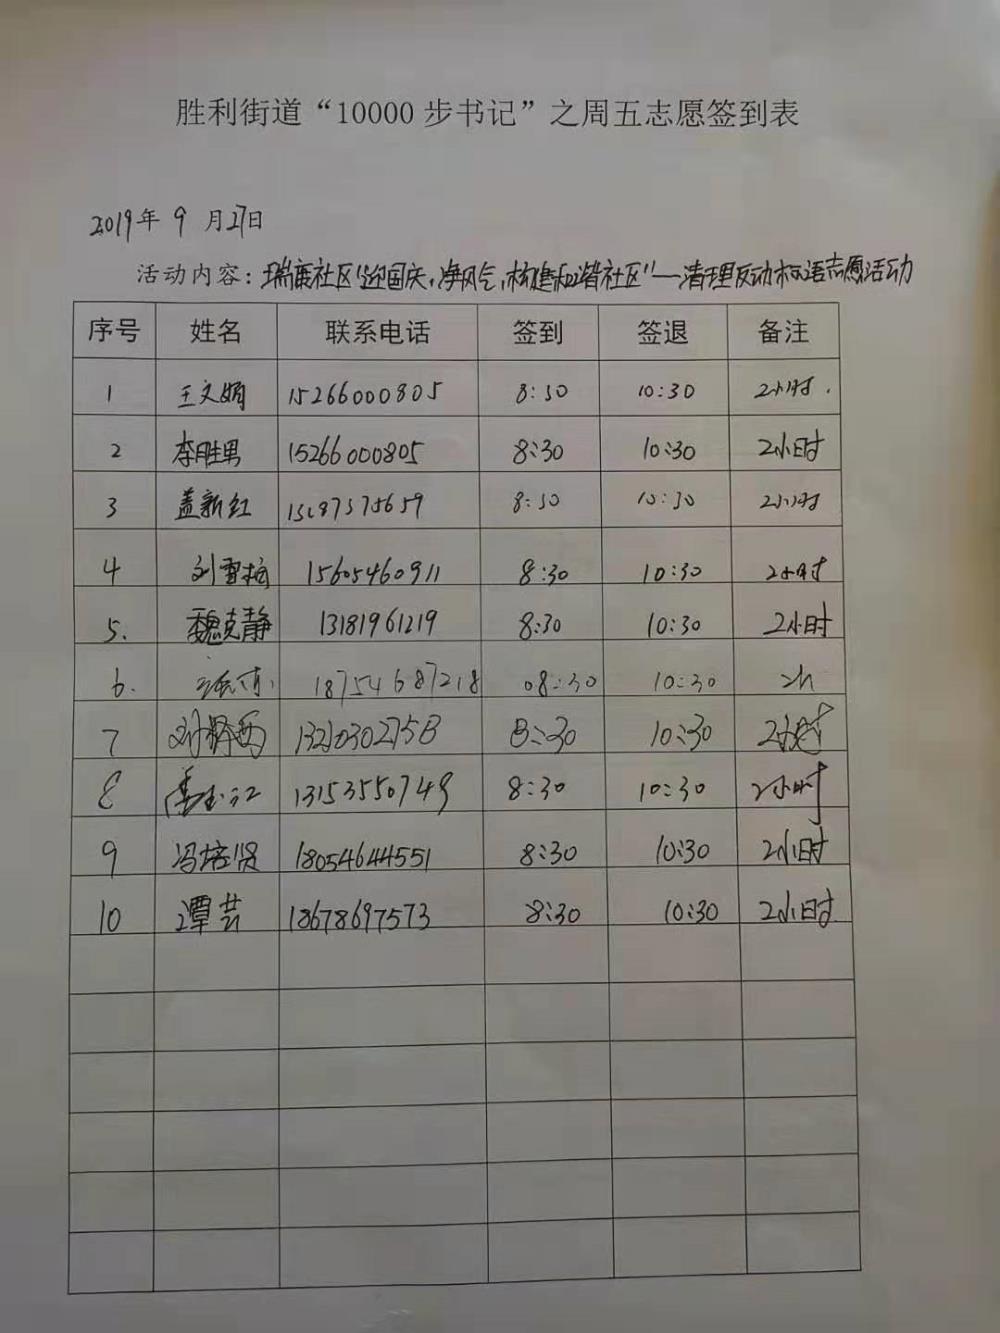 胜利街道“10000步书记”之周五志愿签到表
2019年 9 月27日
活动内容：瑞康社区“迎国庆，净风气，构建和谐社区”—清理反动标语志愿活动
序号 姓名 联系电话 签到 签退 备注
1 王文娟 15266000805 8:30 10:30 2小时.
2 李胜男 15266000805 8:30 10:30 2小时
3 盖新红 8:30 10:30 2小时
4 刘雪梅 15605460911 8:30 10:30 2小时
5. 魏克静 13181961219 8:30 10:30 2小时
6. 18754687218 08:30 10:30 2h
7 8:30 10:30 2小时
8 13153550749 8:30 10:30 2小时
9 冯培贤 18054644551 8:30 10:30 2小时
10 谭芸 18678697573 8:30 10:30 2小时